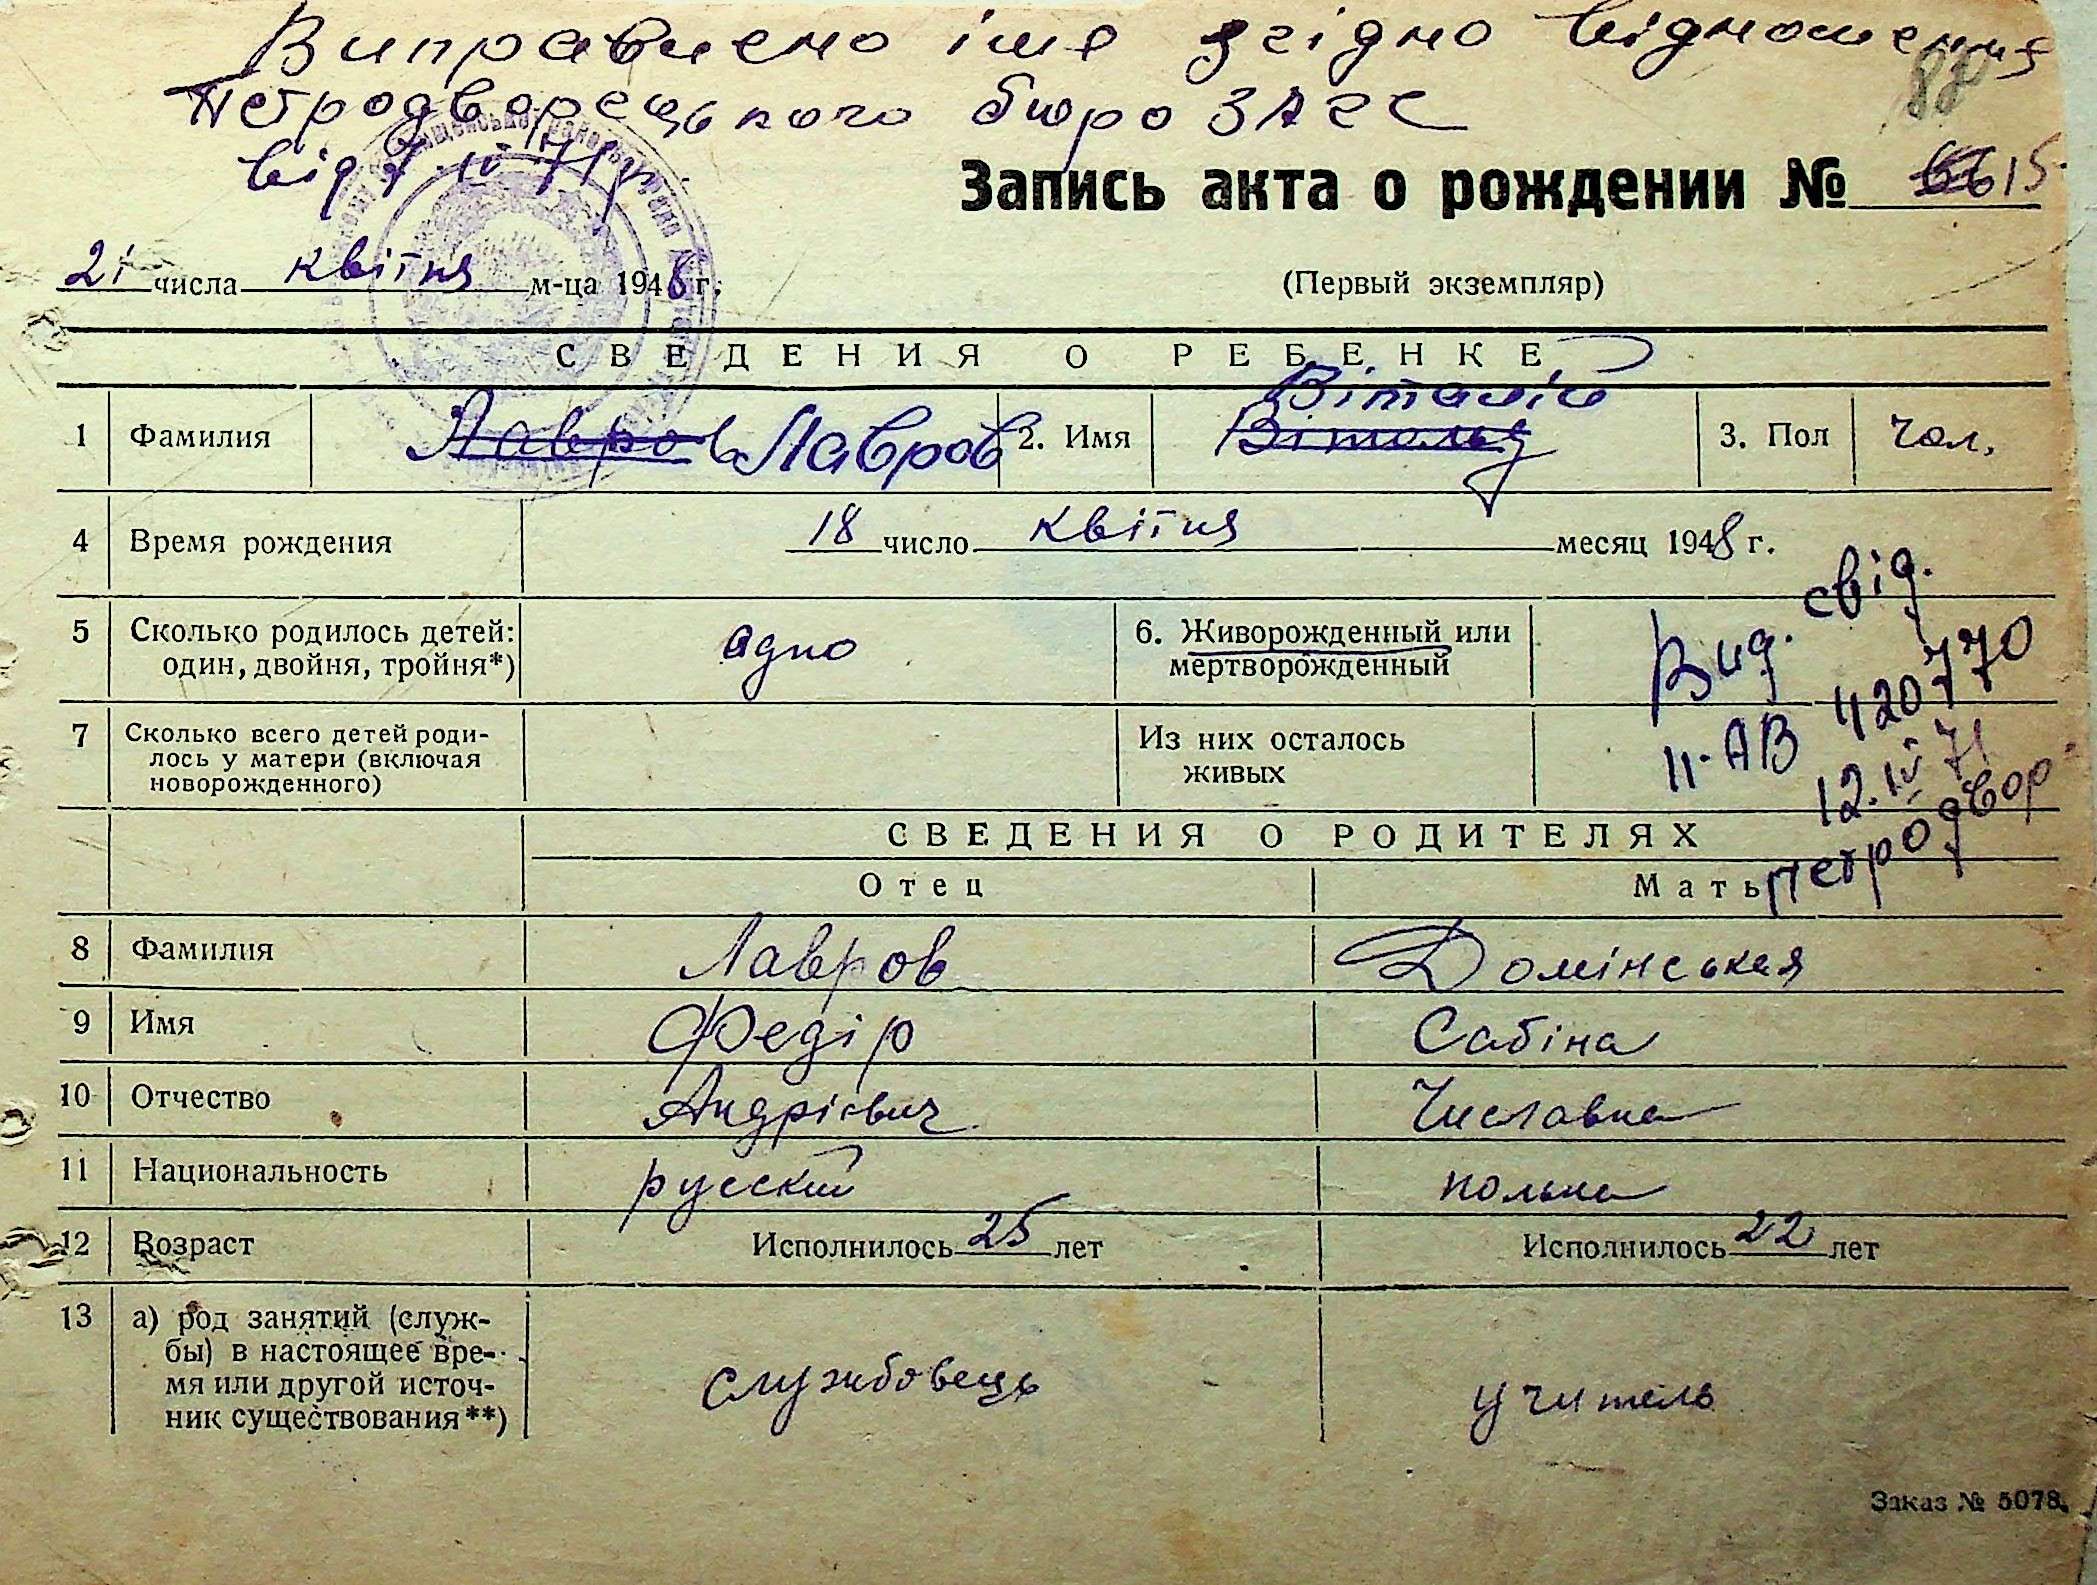 Виправлено імя згідно відношення
Петродворецького бюро ЗАГС
від 7.IV.71р.
80
Запись акта о рождении № 66 15
21 числа квітня м-ца 1948 г.
(Первый экземпляр)
СВЕДЕНИЯ О РЕБЕНКЕ
Віталій
1 Фамилия Лавров Лавров 2. Имя Вітольд 3. Пол Чол.
4 Время рождения 18 число квітня месяц 1948 г.
5 Сколько родилось детей: один, двойня, тройня*) одно 6. Живорожденный или мертворожденный
Вид. свід.
II-АВ 420770
12.IV 71
петродвор
7 Сколько всего детей родилось у матери (включая новорожденного) Из них осталось живых
СВЕДЕНИЯ О РОДИТЕЛЯХ
Отец Мать
8 Фамилия Лавров Домінськая
9 Имя Федір Сабіна
10 Отчество Андрієвич Числавна
11 Национальность русский полька
12 Возраст Исполнилось 25 лет Исполнилось 22 лет
13 а) род занятий (служ-
бы) в настоящее вре-
мя или другой источ-
ник существования**) службовець учитель
Заказ № 5078.